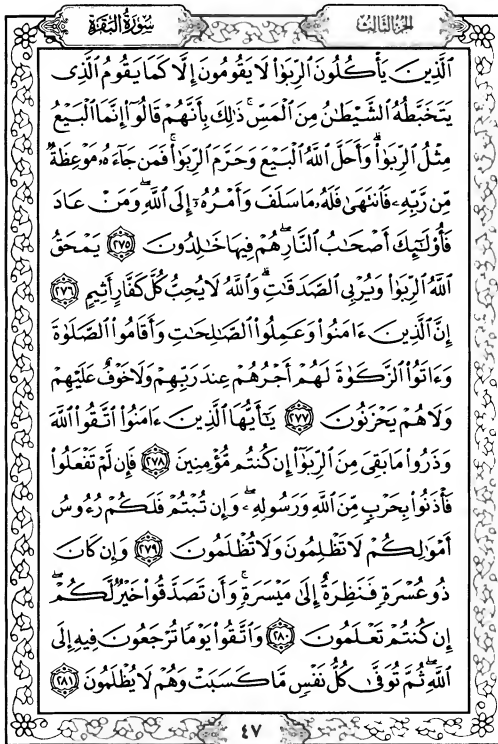 سُورَةُ البَقَرَةِ
الجزء الثالث
ٱلَّذِينَ يَأۡكُلُونَ ٱلرِّبَوٰاْ لَا يَقُومُونَ إِلَّا كَمَا يَقُومُ ٱلَّذِي
يَتَخَبَّطُهُ ٱلشَّيۡطَٰنُ مِنَ ٱلۡمَسِّۚ ذَٰلِكَ بِأَنَّهُمۡ قَالُوٓاْ إِنَّمَا ٱلۡبَيۡعُ
مِثۡلُ ٱلرِّبَوٰاْۗ وَأَحَلَّ ٱللَّهُ ٱلۡبَيۡعَ وَحَرَّمَ ٱلرِّبَوٰاْۚ فَمَن جَآءَهُۥ مَوۡعِظَةٞ
مِّن رَّبِّهِۦ فَٱنتَهَىٰ فَلَهُۥ مَا سَلَفَ وَأَمۡرُهُۥٓ إِلَى ٱللَّهِۖ وَمَنۡ عَادَ
فَأُوْلَٰٓئِكَ أَصۡحَٰبُ ٱلنَّارِۖ هُمۡ فِيهَا خَٰلِدُونَ ٢٧٥ يَمۡحَقُ
ٱللَّهُ ٱلرِّبَوٰاْ وَيُرۡبِي ٱلصَّدَقَٰتِۗ وَٱللَّهُ لَا يُحِبُّ كُلَّ كَفَّارٍ أَثِيمٍ ٢٧٦
إِنَّ ٱلَّذِينَ ءَامَنُواْ وَعَمِلُواْ ٱلصَّٰلِحَٰتِ وَأَقَامُواْ ٱلصَّلَوٰةَ
وَءَاتَوُاْ ٱلزَّكَوٰةَ لَهُمۡ أَجۡرُهُمۡ عِندَ رَبِّهِمۡ وَلَا خَوۡفٌ عَلَيۡهِمۡ
وَلَا هُمۡ يَحۡزَنُونَ ٢٧٧ يَٰٓأَيُّهَا ٱلَّذِينَ ءَامَنُواْ ٱتَّقُواْ ٱللَّهَ
وَذَرُواْ مَا بَقِيَ مِنَ ٱلرِّبَوٰٓاْ إِن كُنتُم مُّؤۡمِنِينَ ٢٧٨ فَإِن لَّمۡ تَفۡعَلُواْ
فَأۡذَنُواْ بِحَرۡبٖ مِّنَ ٱللَّهِ وَرَسُولِهِۦۖ وَإِن تُبۡتُمۡ فَلَكُمۡ رُءُوسُ
أَمۡوَٰلِكُمۡ لَا تَظۡلِمُونَ وَلَا تُظۡلَمُونَ ٢٧٩ وَإِن كَانَ
ذُو عُسۡرَةٖ فَنَظِرَةٌ إِلَىٰ مَيۡسَرَةٖۚ وَأَن تَصَدَّقُواْ خَيۡرٞ لَّكُمۡۖ
إِن كُنتُمۡ تَعۡلَمُونَ ٢٨٠ وَٱتَّقُواْ يَوۡمٗا تُرۡجَعُونَ فِيهِ إِلَى
ٱللَّهِۖ ثُمَّ تُوَفَّىٰ كُلُّ نَفۡسٖ مَّا كَسَبَتۡ وَهُمۡ لَا يُظۡلَمُونَ ٢٨١
٤٧